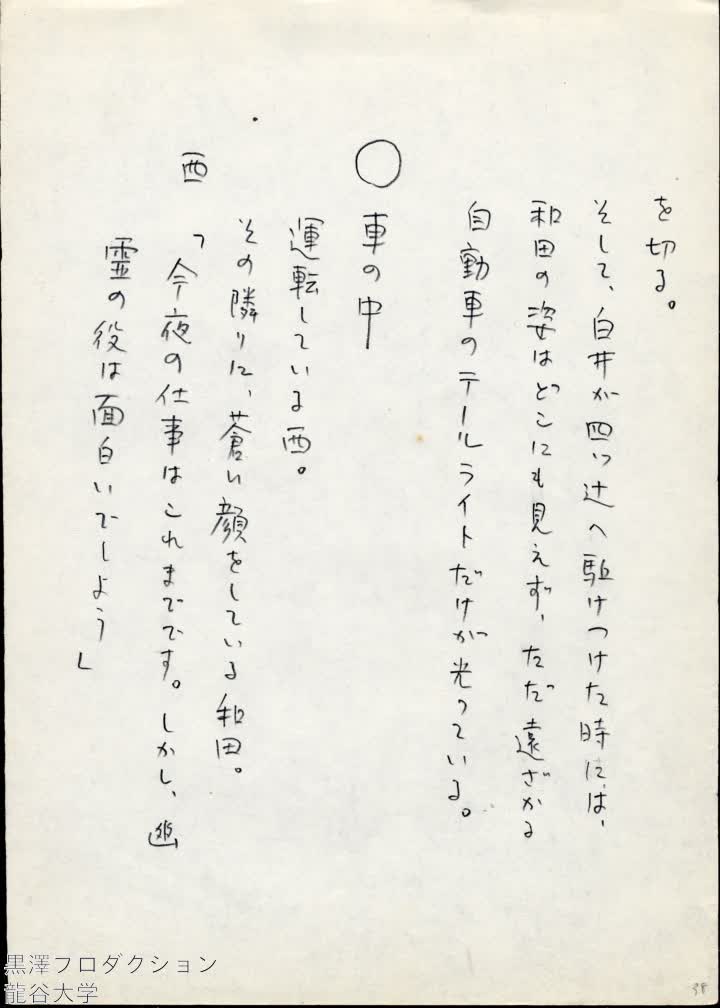 を切る。
そして、白井が四つ辻へ駈けつけた時には、
和田の姿はどこにも見えず、ただ遠ざかる
自動車のテールライトだけが光っている。
○ 車の中
運転している西。
その隣りに、蒼い顔をしている和田。
西「今夜の仕事はこれまでです。しかし、幽
霊の役は面白いでしよう」
38
黒澤プロダクション
龍谷大学